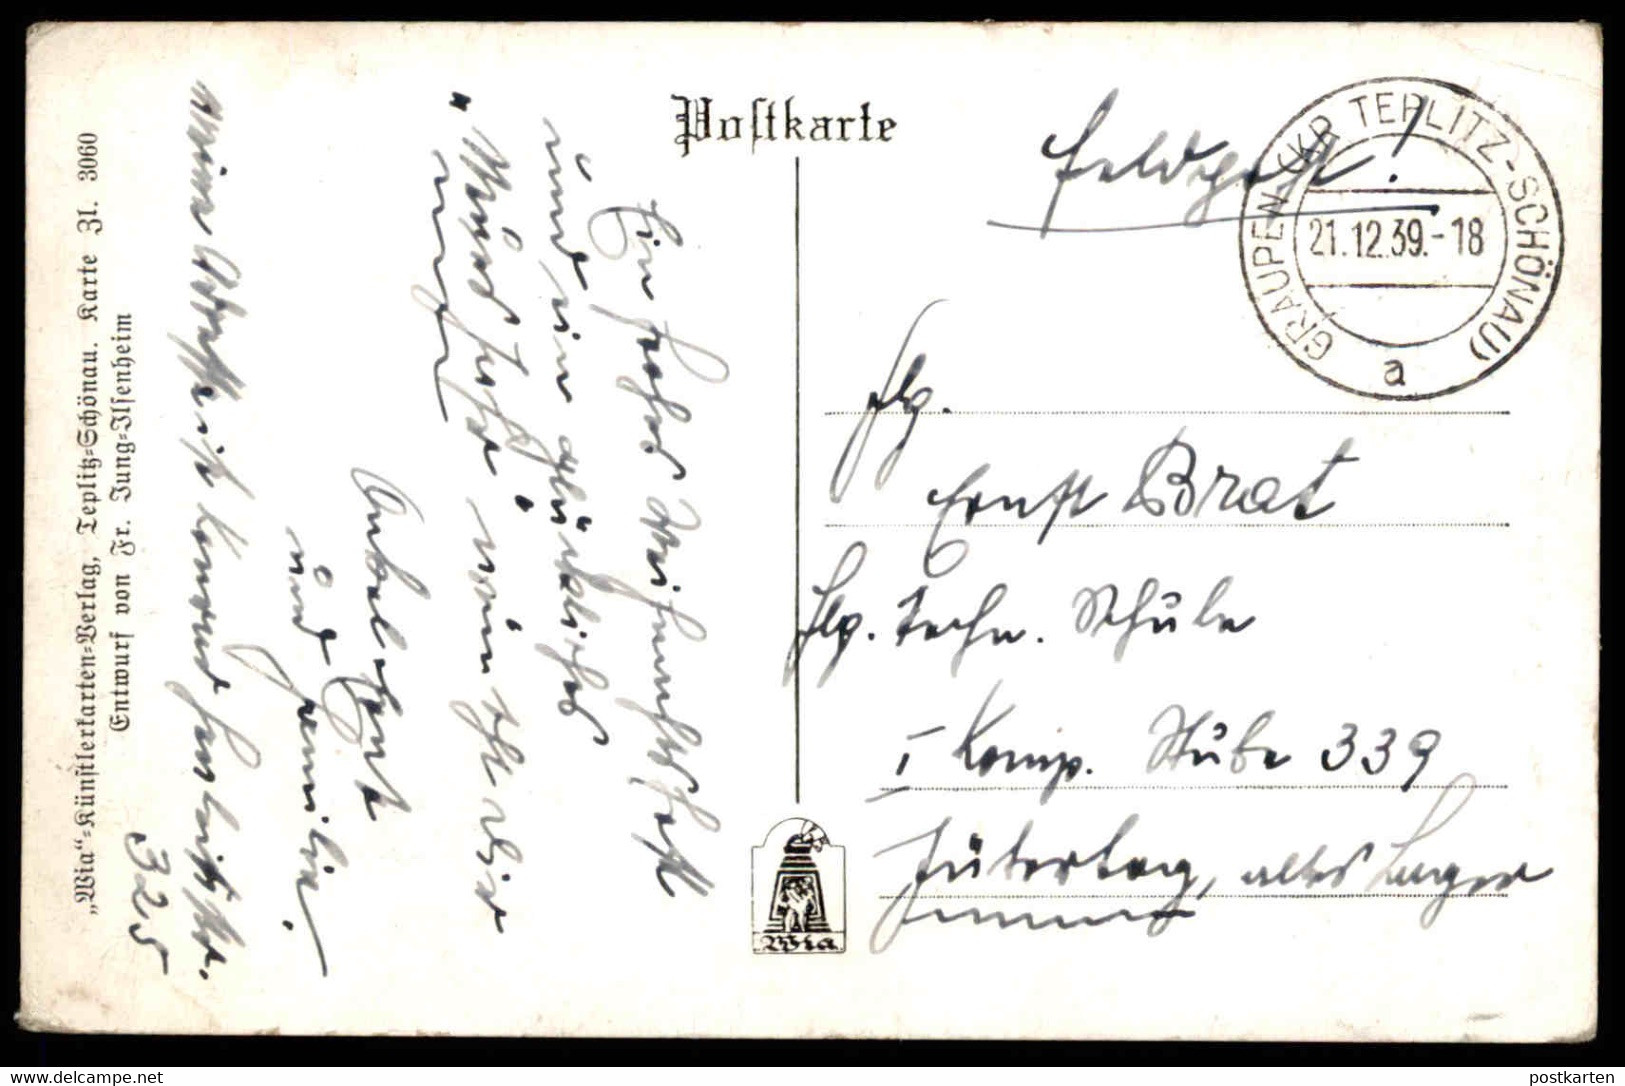 Postkarte
Feldpost!
GRAUPEN (KR. TEPLITZ-SCHÖNAU)
21.12.39.-18
a
Flg.
Ernst Brat
Flg. Techn. Schule
I Komp. Stube 339
Jüterbog, altes Lager
Ein frohes Weihnachtsfest
und ein glückliches
"Neues Jahr" wünscht dir
Onkel
und Familie.
meine Adresse ist
325
„Wia“-Künstlerkarten-Verlag, Teplitz-Schönau. Karte Zl. 3060
Entwurf von Fr. Jung-Ilsenheim
Wia
delcampe.net
postkarten